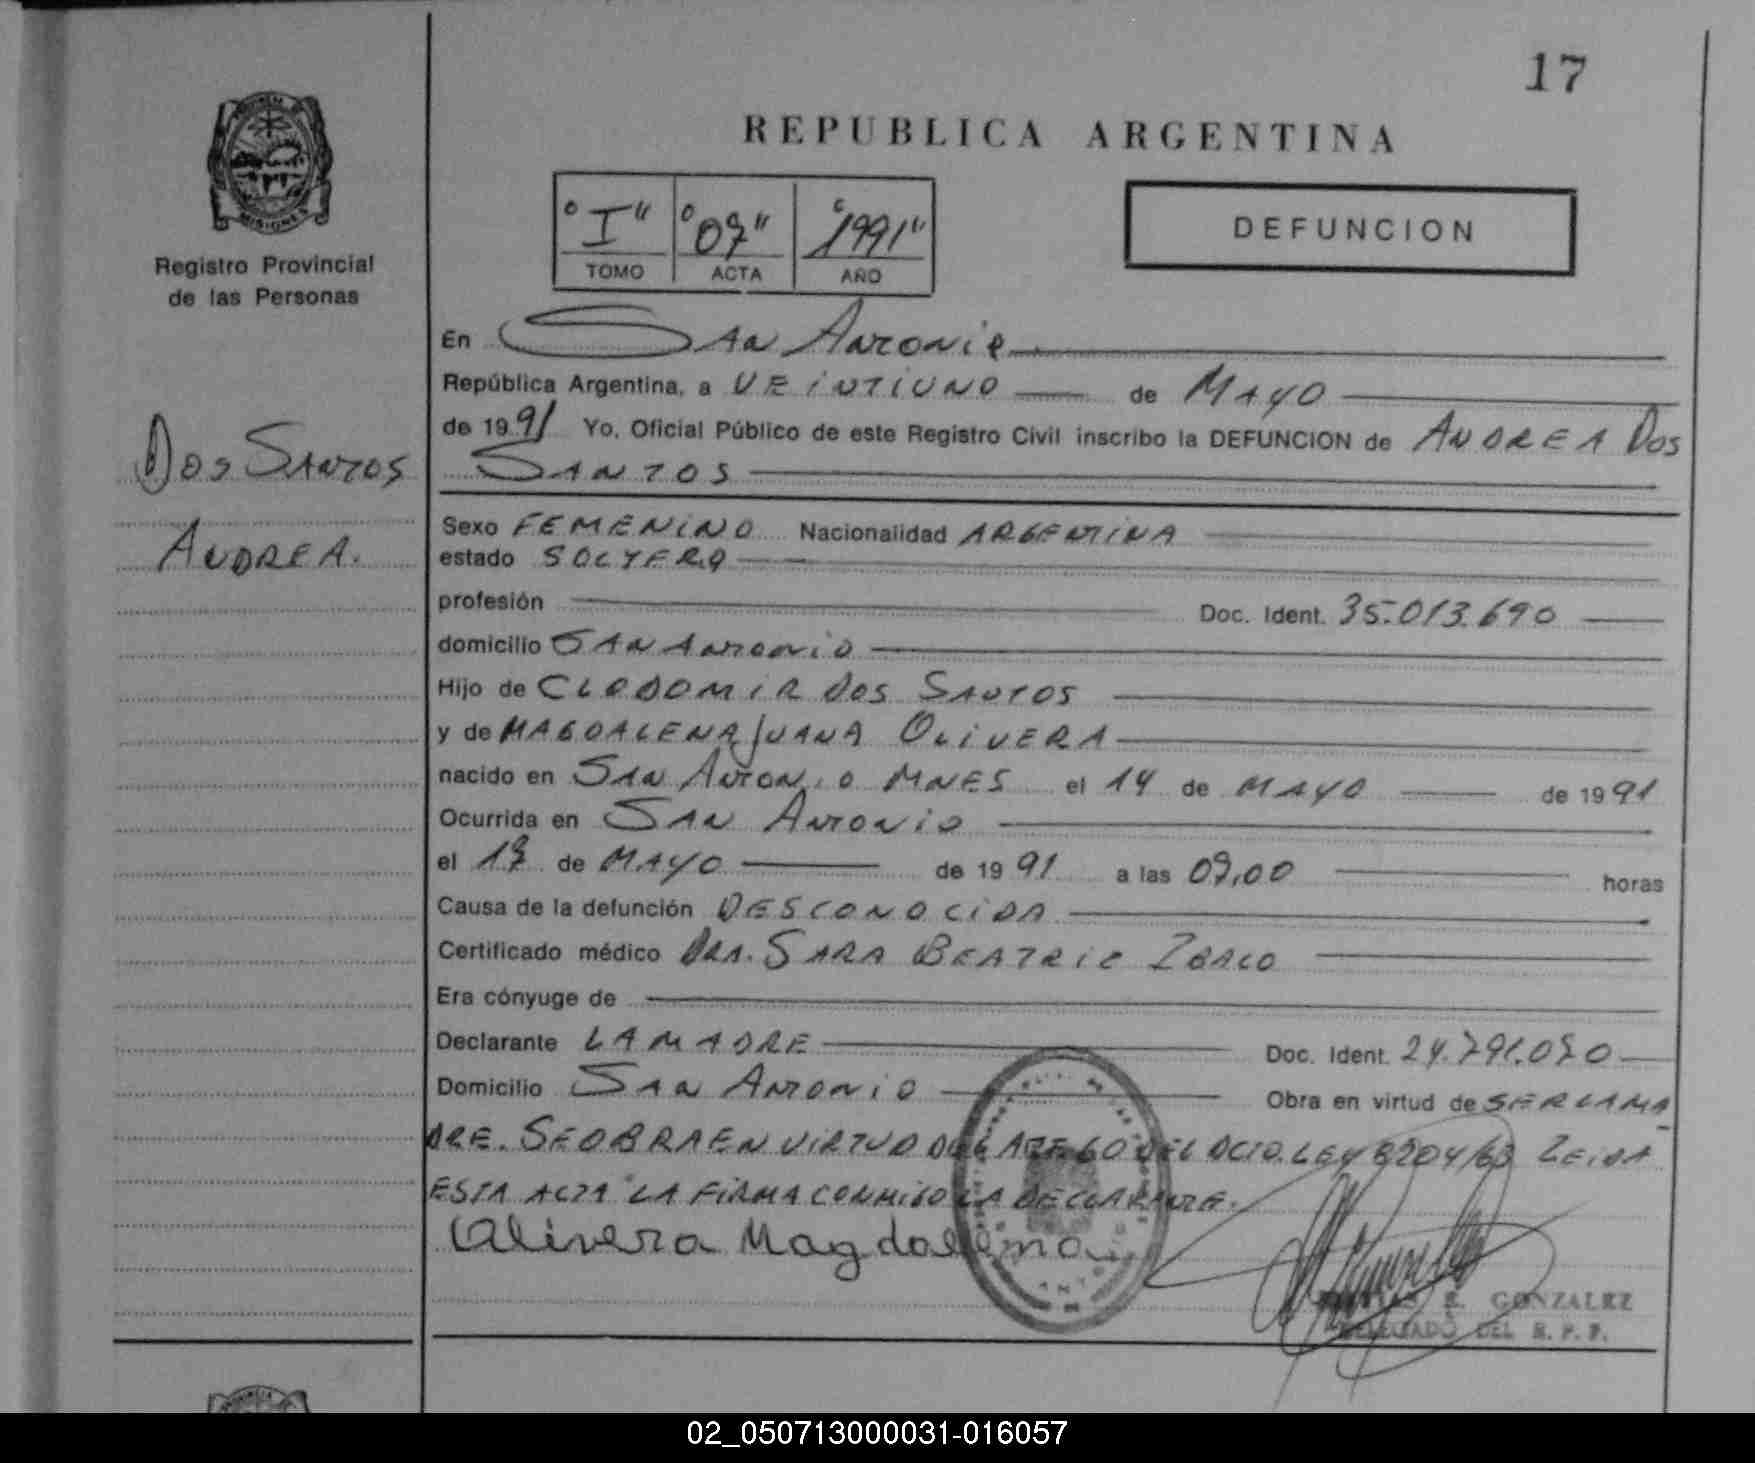 17
REPUBLICA ARGENTINA
"I" "07" "1991"
TOMO ACTA AÑO
DEFUNCION
PROVINCIA DE
MISIONES
Registro Provincial
de las Personas
DOS SANTOS
ANDREA.
En SAN ANTONIO
República Argentina, a VEINTIUNO de MAYO
de 1991 Yo, Oficial Público de este Registro Civil inscribo la DEFUNCION de ANDREA DOS
SANTOS
Sexo FEMENINO Nacionalidad ARGENTINA
estado SOLTERO
profesión Doc. Ident. 35.013.690
domicilio SAN ANTONIO
Hijo de CLODOMIR DOS SANTOS
y de MAGDALENA JUANA OLIVERA
nacido en SAN ANTONIO MNES el 14 de MAYO de 1991
Ocurrida en SAN ANTONIO
el de MAYO de 1991 a las horas
Causa de la defunción DESCONOCIDA
Certificado médico DRA. SARA BEATRIZ
Era cónyuge de
Declarante LA MADRE Doc. Ident.
Domicilio SAN ANTONIO Obra en virtud de SER LA MA
DRE. SE OBRA EN VIRTUD DEL DEL DCTO. LEY 8204/63 LEIDA
ESTA ACTA LA FIRMA CONMIGO LA DECLARANTE.
Olivera Magdalena
GONZALEZ
DELEGADO DEL R. P. P.
02_050713000031-016057